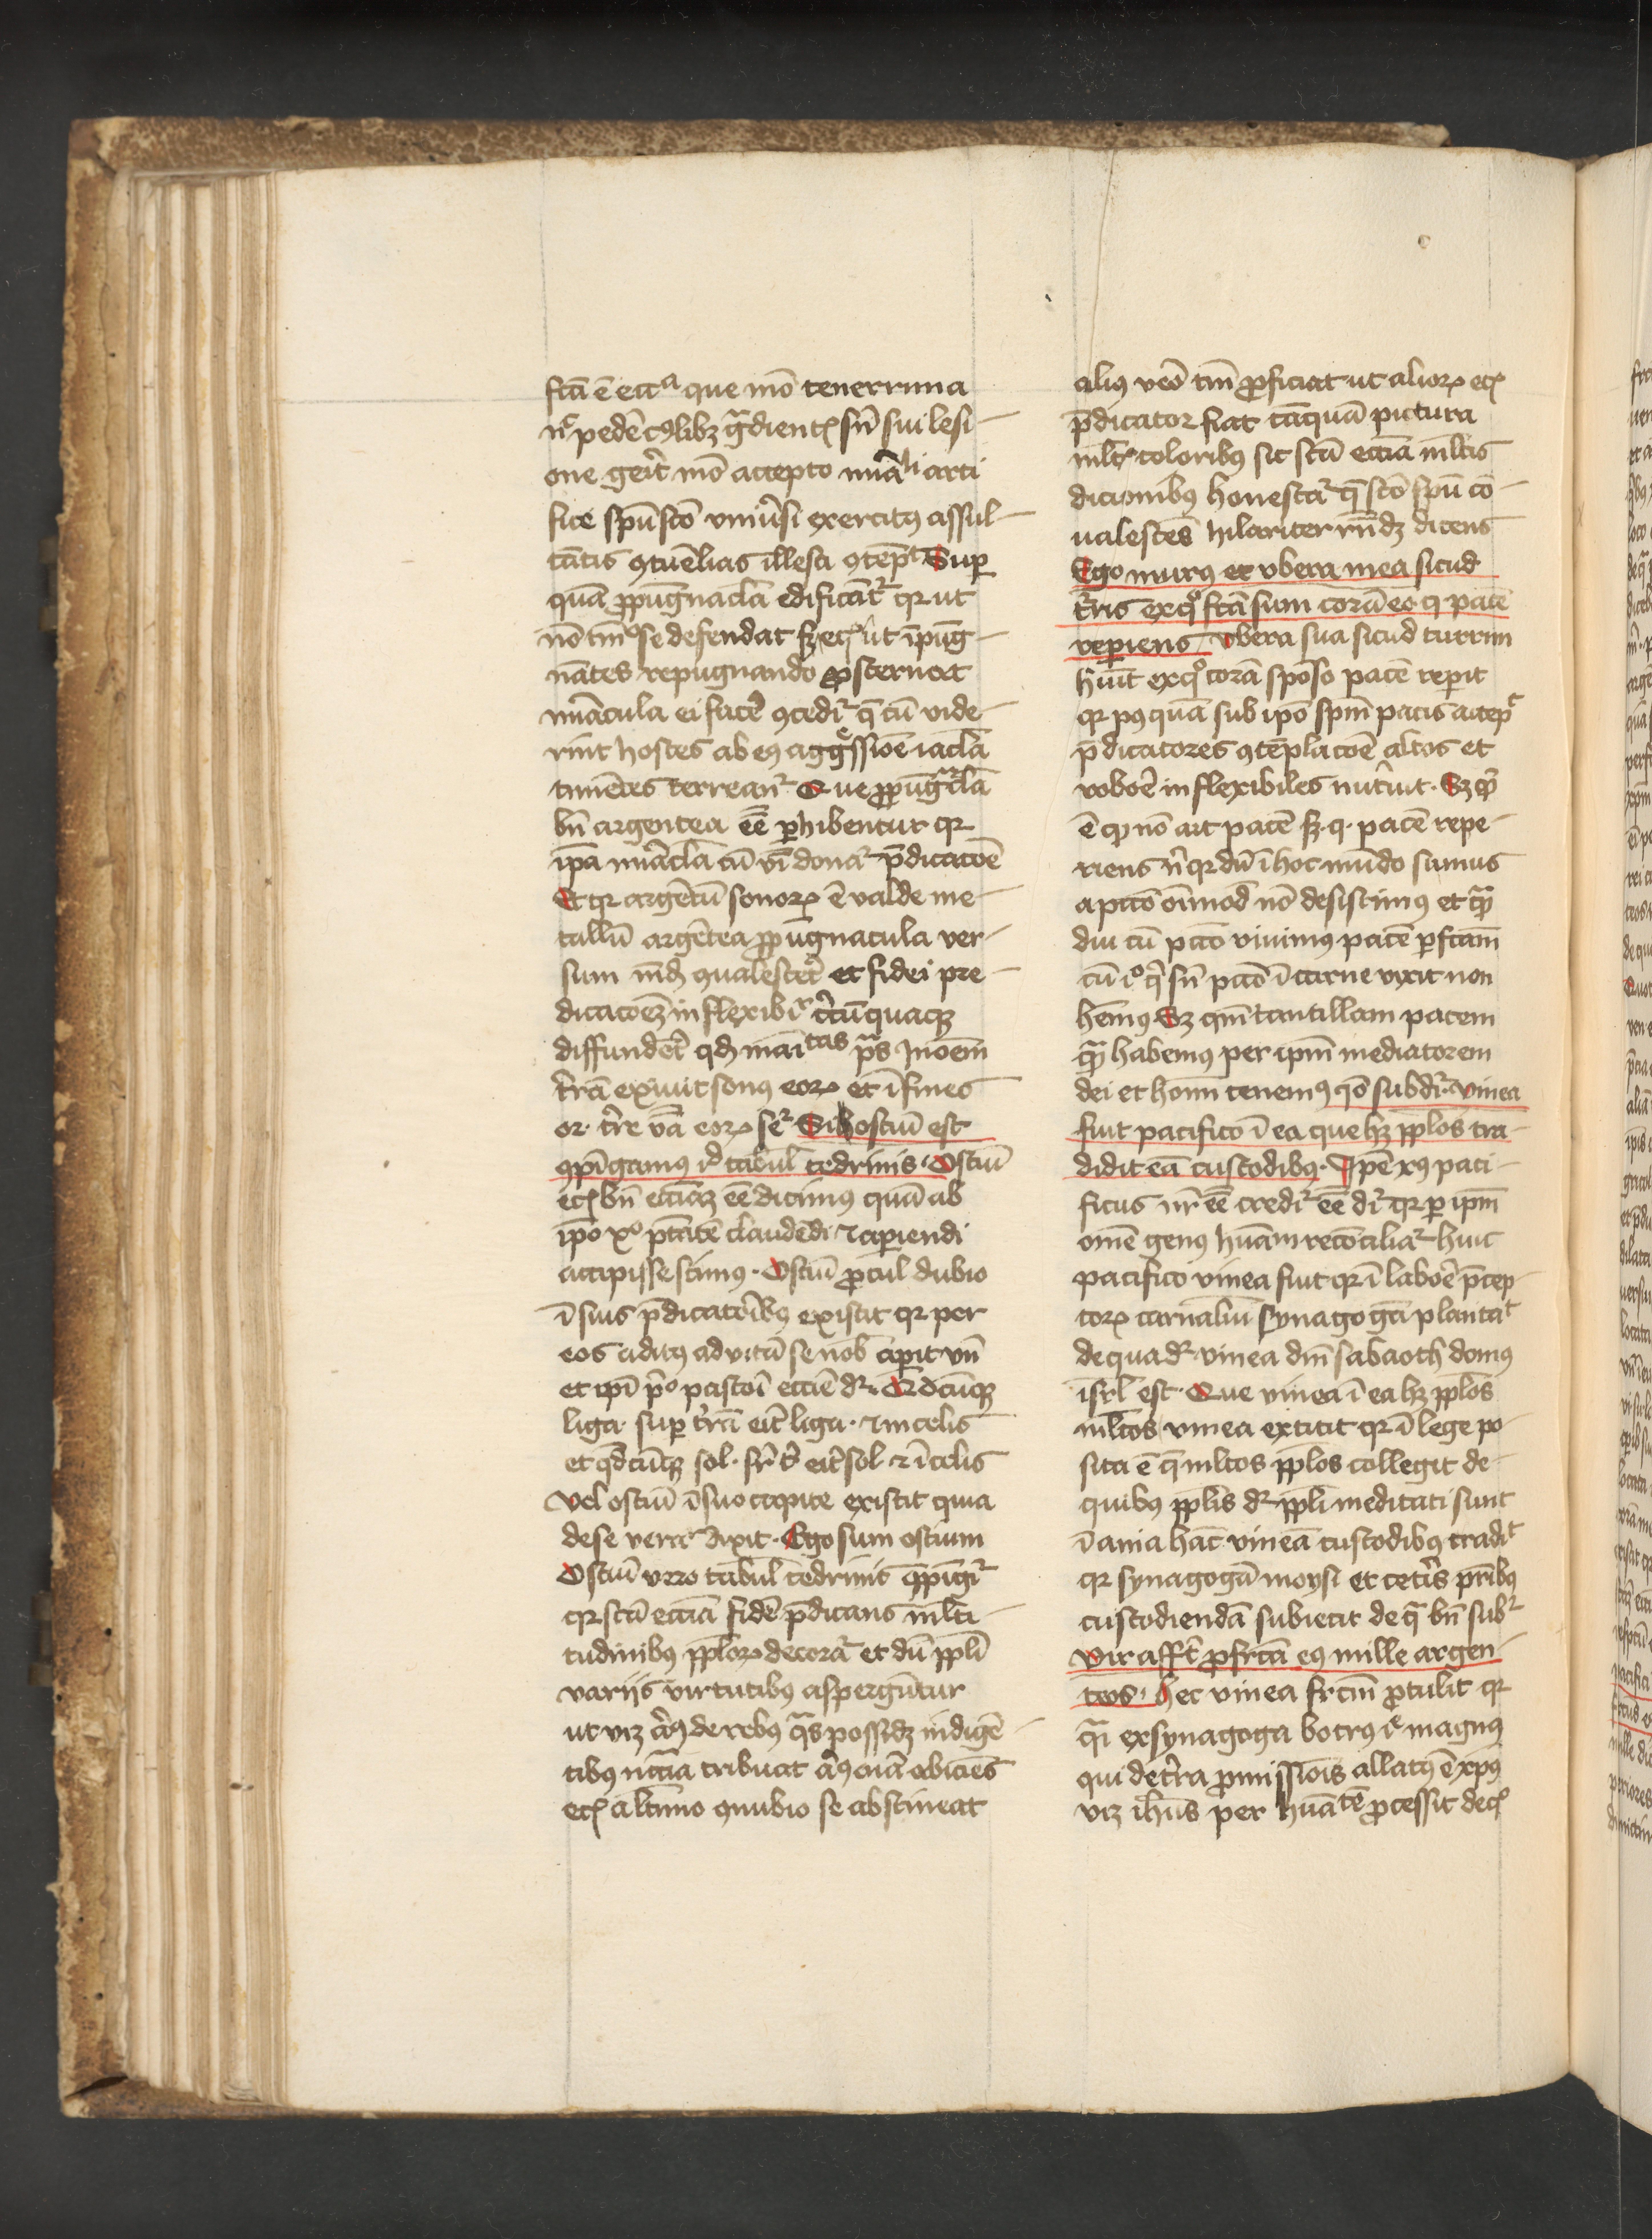 sctā ē ecca que mō tenerrima
nc̄ pedē cꝰlibꝫ gͣdientꝭ sn̄ sui lesi-
one gerit̄ mō accepto mūali arti
fice spū scō vniūsi exercitꝰ assul-
tātis ꝯtūelias illesa ꝯtēpt Super
quā ꝓpūgnacl̄a edificātᷣ qr ut
nō tm̄ se defendat sꝫ ecꝭ ut īpūg-
nātes repugnando ꝓsternat
mūacula ei facē ꝯcedit̄ q̄ cū vide-
rint hostes ab eꝰ aggressiōe iacl̄a
timētes terreanᷣ Que ꝓpūgnacl̄a
bn̄ argentea eē perhibentur qr
ip̄a mūacl̄a cū vī donat̄ p̄dicatoē
Et qr argētū sonorꝝ ē valde me-
tallū argētea ꝓpūgnacula ver-
sum mꝺ ꝯualescet̄ et fidei pre-
dicacoēꝫ inflexibir circūquacꝫ
diffundet̄ qꝺ inaitas p̄s In oēm
trā̄ exiuit sonus eorꝝ et ī fines
or. tre v̄a eorꝝ ser Si ostiū est
ꝯpīgamꝰ id tabul̄ cedrinis. Ostiū
ecꝭ bn̄ ecciaꝫ eē dicimꝰ quā ab
ip̄o xo ptātē claudēdi ⁊ aperiendi
accepisse scimꝰ. Ostiū ꝓcul dubio
ī suis p̄dicatoribꝰ existit qr per
eos aditꝰ ad vitā se nob̄ aperit vn̄
et ip̄i po pastoī eccie dr. Qdcūqꝫ
liga. super trā eit liga. ⁊ in celis
et qdcūqꝫ sol. sr t̄ eit sol. ⁊ ī celis
Vel ostiū ī suo capite existit quia
de se verit̄ dixit. Ego sum ostium
Ostiū vero tabul̄ cedrinis ꝯpīgit̄
qr sctā eccia fidē p̄dicans ml̄ti-
tudinibꝰ pplorꝝ decorat̄ et dū ppl̄i
variis virtutibꝰ aspergūtur
ut viꝫ aꝰ de rebꝰ qͣs possidꝫ indigē-
tibꝰ nccīa tribuat aꝰ oīa abiciēs
ecꝭ a ltimo ꝯnubio se abstineat
aliꝰ vēo tm̄ ꝓficiat ut aliorꝝ ecꝭ
p̄dicator fiat tāquā pictura
mltꝭ coloribꝰ sic sctā eccia ml̄tis
dicionibꝰ honestat̄ q̄ scō spū cō-
ualescēs hilariter rn̄dꝫ dicens
Ego murꝰ et vbera mea sicud
tris exqͦ fctā sum corā eo. q pacē
reperiens. Vbera sua sicud turrim
huīt exqͦ corā sponso pacē reperit
qr pꝰquā sub ip̄o spm̄ pacis accepͭ
p̄dicatores ꝯtēplacoē altos et
roboē inflexibiles nutriuit. Sꝫ qͥ
ē qꝭ nō ait pacē sꝫ. q. pacē repe-
riens n̄ qr dū ī hoc mūdo sumus
a pccō oīmod̄ nō desistimꝰ et qͣ
diu cū pccō viuimꝰ pacē perfctam
cū io qͥ sn̄ pccō ī carne vixit non
hēmꝰ Sꝫ qm̄ tantillam pacem
qͣ habemus per ip̄m mediatorem
dei et homī tenemꝰ qo subdr. vinea
fuit pacifico ī ea que hꝫ ppl̄os tra-
didit eā custodibꝰ. Ip̄e xꝰ paci-
ficus nr eē credit̄ eē dr qr per ip̄m
omē genꝰ hūam reconciliat̄ huic
pacifico vinea fuit qr ī laboē p̄cep-
torꝝ carnaliū synagoga plantat
de qua dr. vinea dn̄i sabaoth domꝰ
isrl̄ est. Que vinea ī ea hꝫ ppl̄os
ml̄tos vinea extitit qr ī lege po-
sita ē q̄ ml̄tos ppl̄os collegit de
quibꝰ ppl̄is dr ppl̄i meditati sunt
īania hāc vineā custodibꝰ tradit
qr synagogā moysi et cetīs p̄ribꝰ
custodiendā subiecit de qͣ bn̄ subr
Vir afft ꝓ frctū eꝰ mille argen-
teos. Hec vinea frctm̄ ꝓtulit qr
qͣ ex synagoga botrꝰ ie magnꝰ
qui de trra ꝓmissiōis allatꝰ ē xpꝰ
viꝫ ihus per hūatē ꝓcessit decꝭ